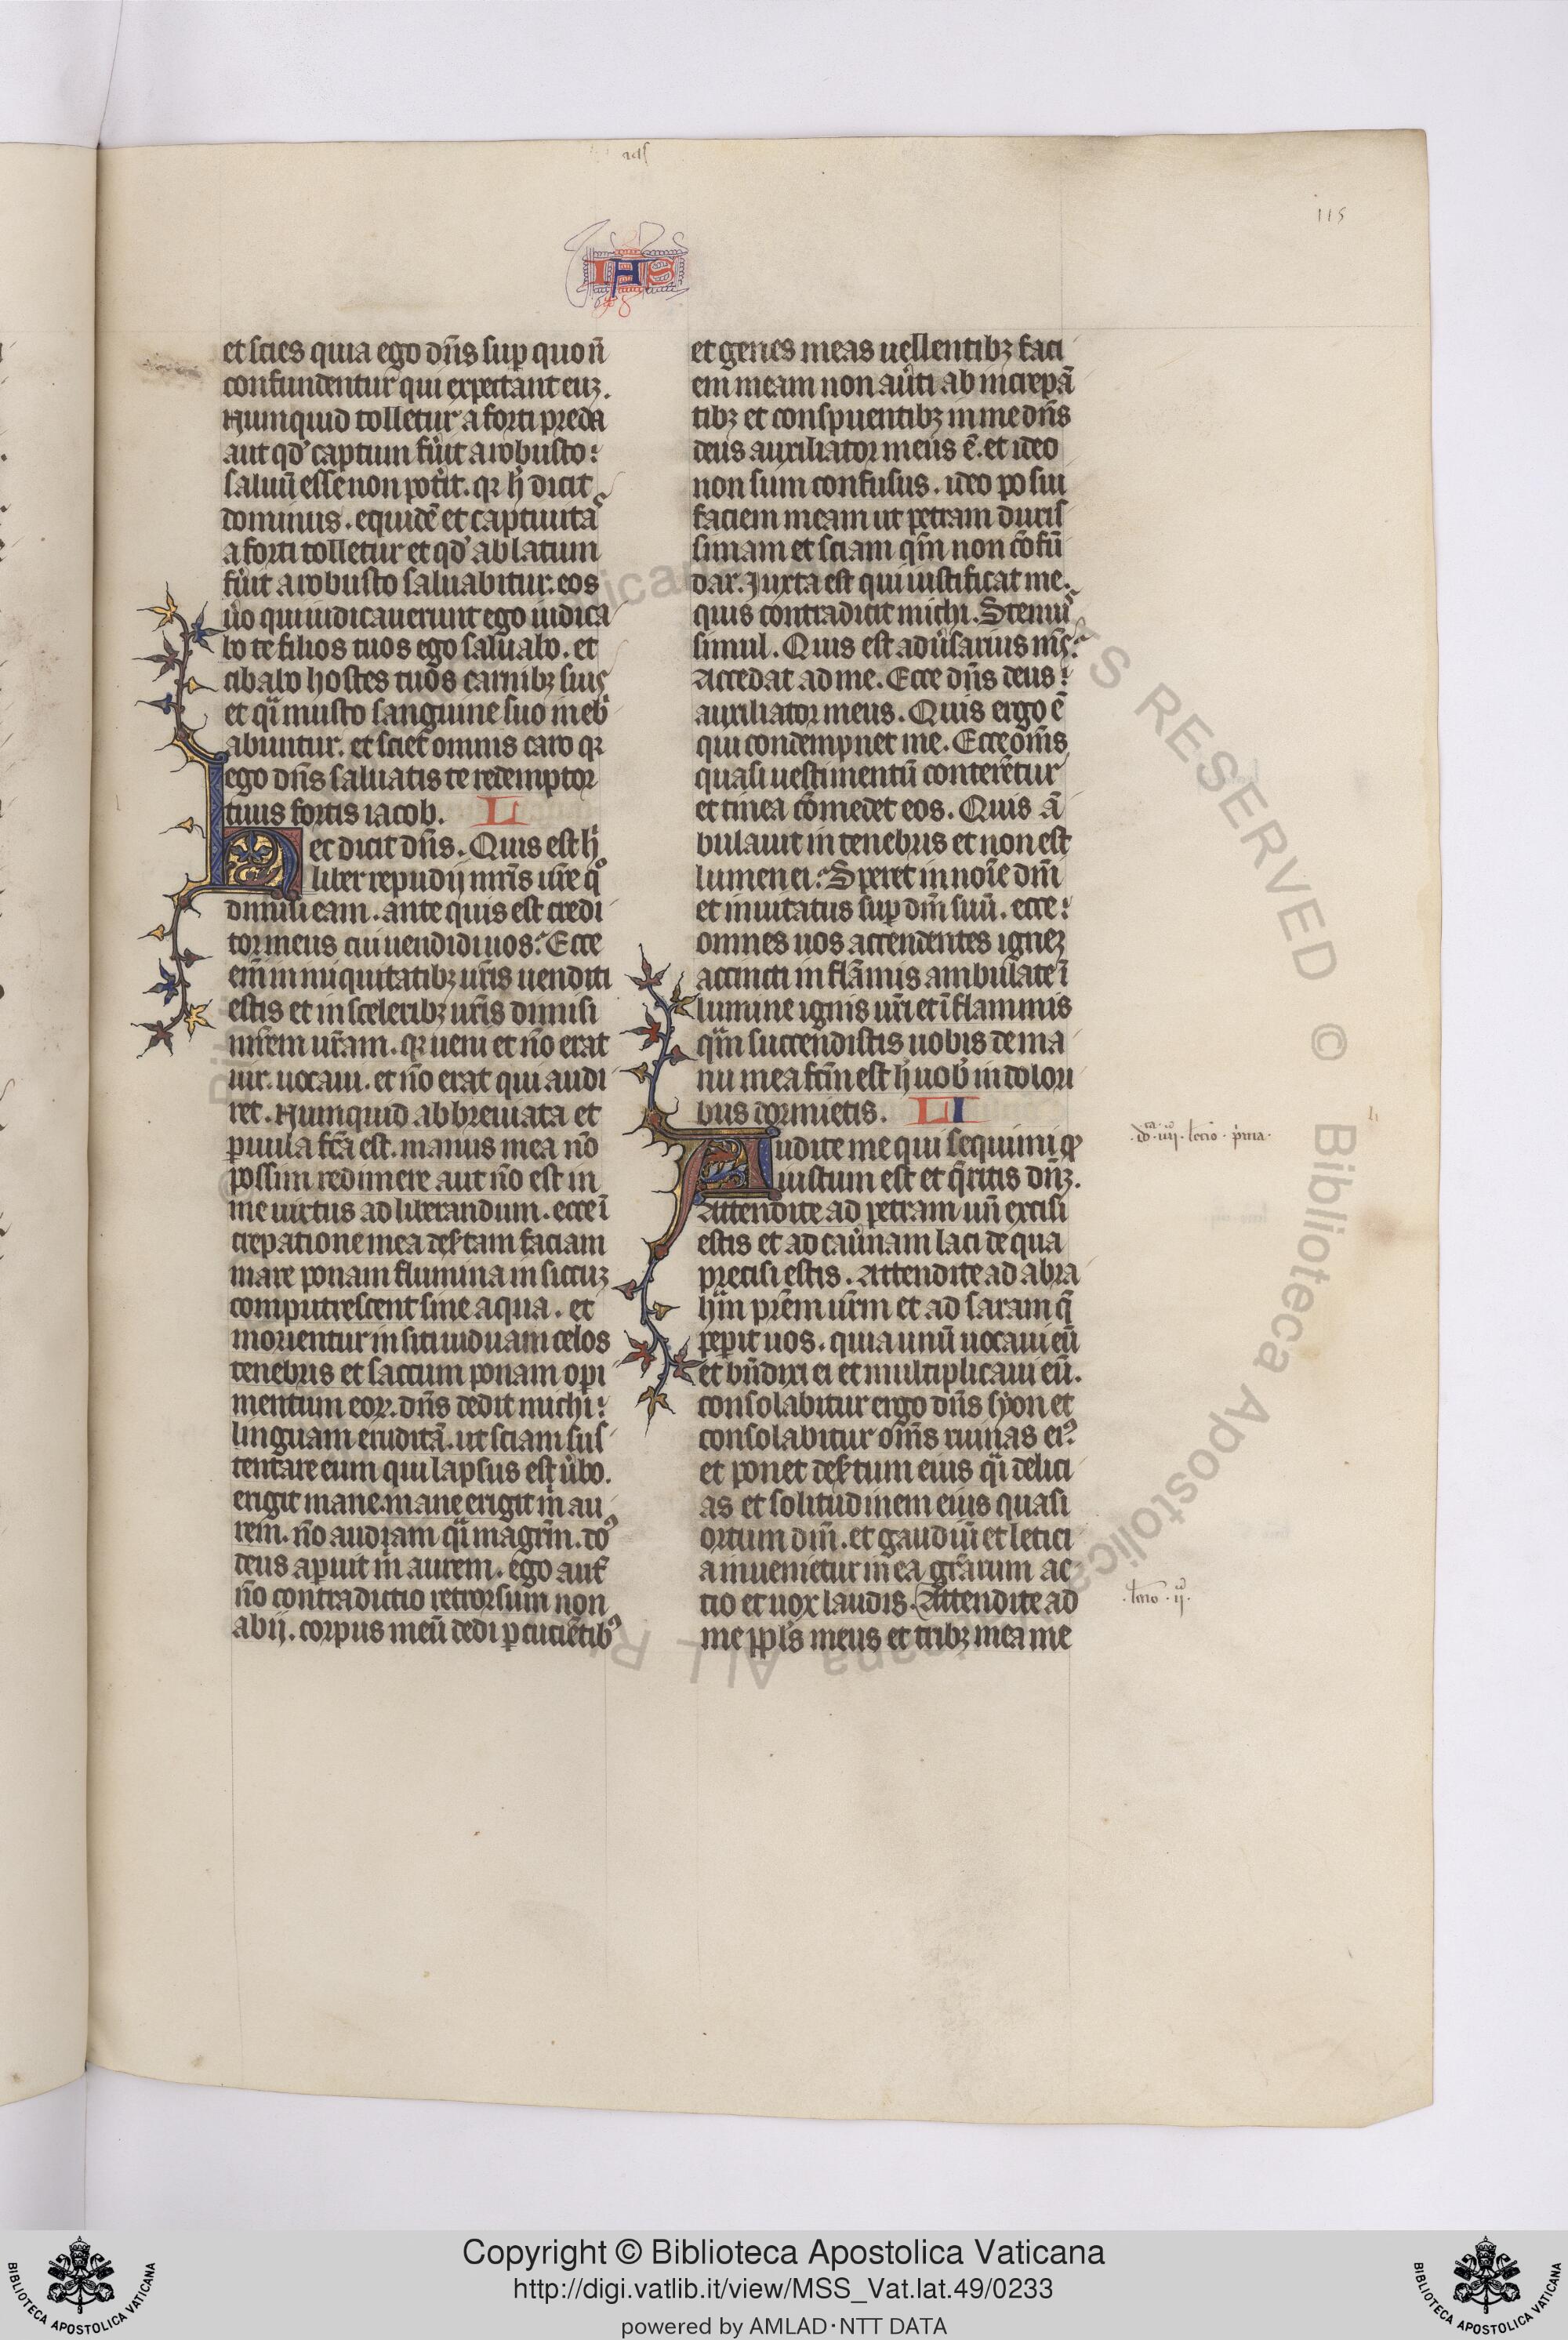 115
IHS
et scies quia ego dn̄s sup̱ quo n̄
confundentur qui expectant euꝫ.
Numquid tolletur a forti preda
aut qd̓ captum fu̓it a robusto:
saluū esse non pot̓it. qꝛ h̓ dicit
dominus. equidē et captiuitas
a forti tolletur et qd̓ ablatum
fu̓it a robusto saluabitur. eos
u̓o qui iudicauerunt ego iudica
bo te filios tuos ego saluabo. et
cibabo hostes tuos carnibꝫ suis
et qͣi musto sanguine suo inebͥ
abuntur. et sciet omnis caro qꝛ
ego dn̄s saluatis te redemptor
tuus fortis iacob. L
Hec dicit dn̄s. Quis est h̓
liber repudij mr̄is ur̄e qͦ
dimisi eam. aut quis est credi
tor meus cui uendidi uos: Ecce
em̄ in iniquitatibꝫ ur̄is uenditi
estis et in sceleribꝫ ur̄is dimisi
mr̄em ur̄am. qꝛ ueni et nō erat
uir. uocaui. et nō erat qui audi
ret. Numquid abbreuiata et
ꝑuula fc̄a est. manus mea nō
possim redimere aut nō est in
me uirtus ad liberandum. ecce ī
crepatione mea deſ̓tam faciam
mare ponam flumina in siccuꝫ
computrescent sine aqua. et
morientur in siti induam celos
tenebris et saccum ponam operi
mentum eoꝝ. dn̄s dedit michi:
linguam eruditā. ut sciam sus
tentare eum qui lapsus est u̓bo.
erigit mane. mane erigit m̓ au
rem. nō audiam qͣi magrm̄. doꝰ
deus aꝑuit m̓ aurem. ego aut̄
nō contradictio retrorsum non
abij. corpus meū dedi ꝑcuciētibꝰ
et genes meas uellentibꝫ faci
em meam non au̓ti ab increpā
tibꝫ et conspuentibꝫ in me dn̄s
deus auxiliator meus ē. et ideo
non sum confusus. ideo posui
faciem meam ut petram duris
simam et sciam qm̄ non cōfū
dar. Juxta est qui iustificat me.
quis contradicit michi. Stemus
simul. Quis est adu̓sarius ms̄:
Accedat ad me. Ecce dn̄s deus:
auxiliator meus. Quis ergo ē
qui condempnet me. Ecce om̄s
quasi uestimentū conterētur
et tinea cōmedet eos. Quis ā
bulauit in tenebris et non est
lumen ei: Speret in noīe dm̄
et inuitatus sup̱ dm̄ suū. ecce:
omnes uos accendentes igneꝫ
accincti in flāmis ambulate ī
lumine ignis ur̄i et ī flammis
qͣm succendistis uobis de ma
nu mea fcm̄ est h̓ uob̓ in dolori
bus dormietis. LI
.dͦca. iiij. lectio. pͥma.
Audite me qui sequimi qͥ
iustum est et q̄ritis dn̄ꝫ.
Attendite ad petram un̄ excisi
estis et ad cau̓nam laci de qua
precisi estis. Attendite ad abra
hͣm pr̄em ur̄m et ad saram q̄
peperit uos. quia unū uocaui eū
et bn̄dixi ei et multiplicaui eū.
consolabitur ergo dn̄s syon et
consolabitur om̄s ruinas eiꝰ
et ponet deſ̓tum eius qͣi delici
as et solitudinem eius quasi
ortum dm̄. et gaudiū et letici
a inuenietur in ea gr̄arum ac
tio et uox laudis. Attendite ad
.lectio. ij.
me ppl̄s meus et tribꝫ mea me
Copyright © Biblioteca Apostolica Vaticana
http://digi.vatlib.it/view/MSS_Vat.lat.49/0233
powered by AMLAD·NTT DATA
BIBLIOTECA APOSTOLICA VATICANA
BIBLIOTECA APOSTOLICA VATICANA